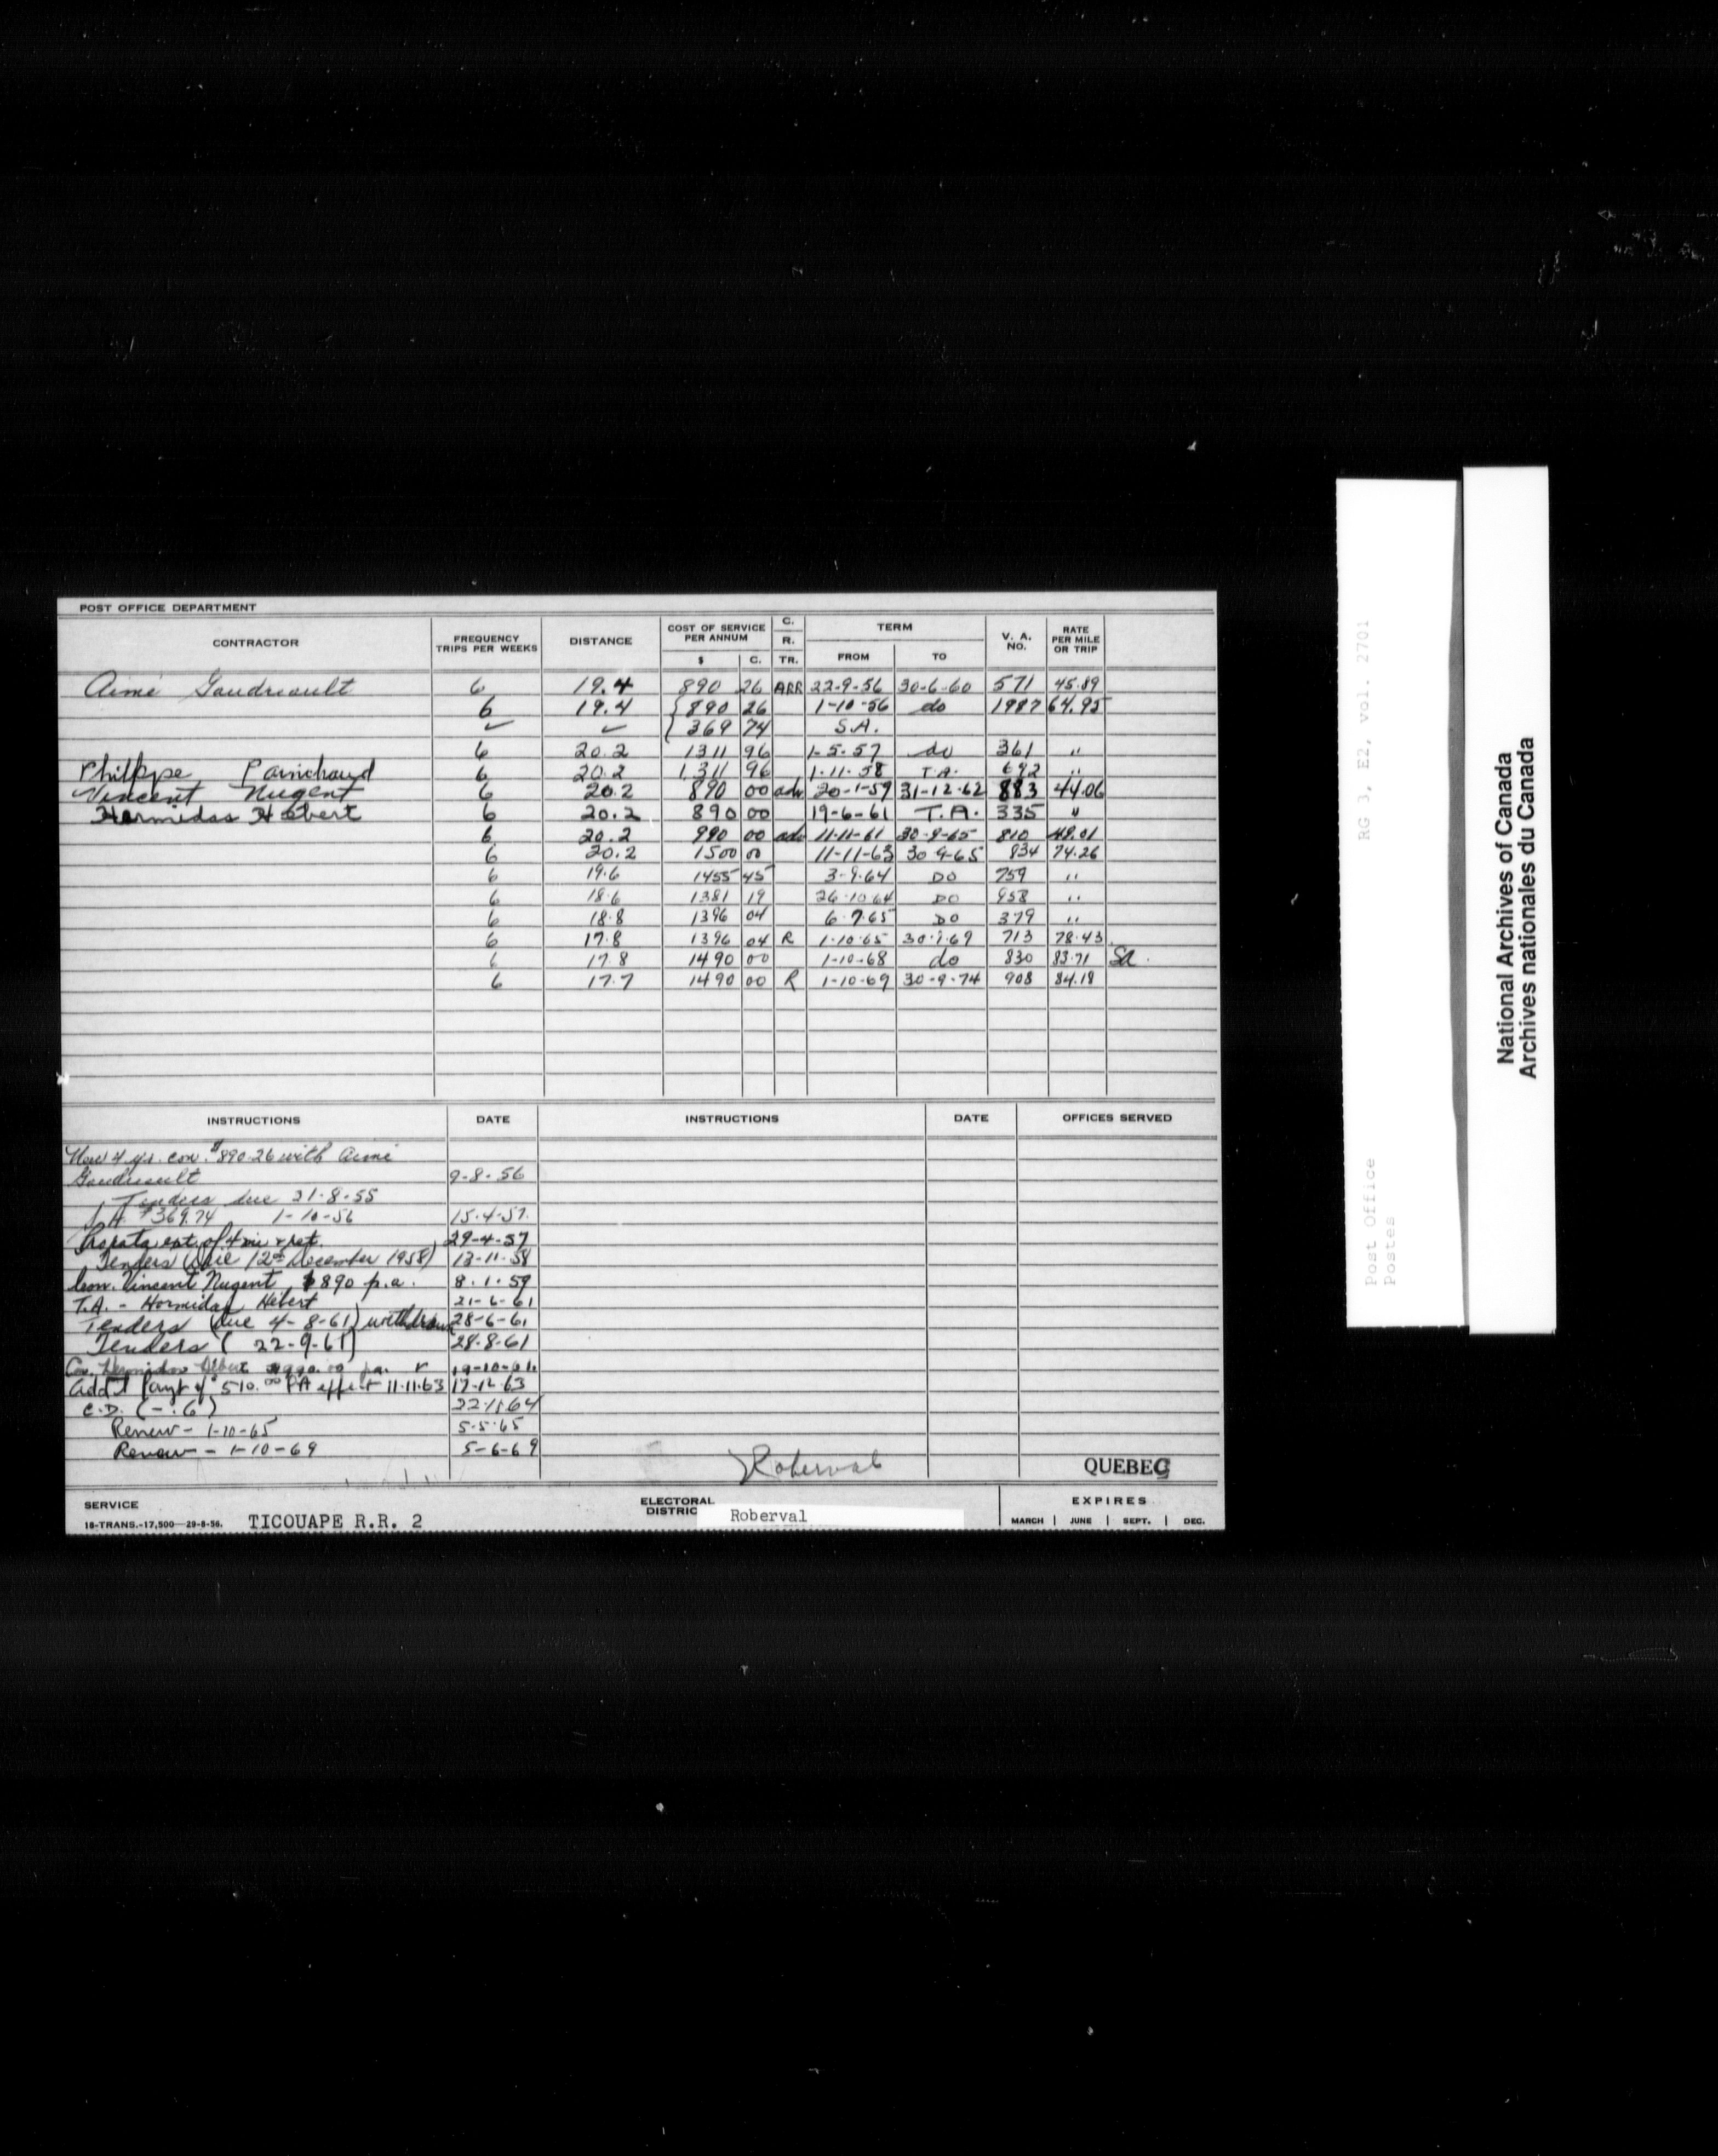 POST OFFICE DEPARTMENT
CONTRACTOR FREQUENCY TRIPS PER WEEKS DISTANCE COST OF SERVICE PER ANNUM $ C. C. R. TR. TERM FROM TO V. A. NO. RATE PER MILE OR TRIP
Aimé Gaudreault 6 19.4 890 26 ARR 22-9-56 30-6-60 571 45.89
6 19.4 { 890 26 1-10-56 do 1987 64.95
✓ ✓ { 369 74 S.A.
6 20.2 1311 96 1-5-57 do 361 "
Philippe Parichaud 6 20.2 1,311 96 1-11-58 T.A. 692 "
Vincent Nugent 6 20.2 890 00 adv 20-1-59 31-12-62 883 44.06
Hormidas Hebert 6 20.2 890 00 19-6-61 T.A. 335 "
6 20.2 990 00 adv 11-11-61 30-9-65 810 49.01
6 20.2 1500 00 11-11-63 30-9-65 834 74.26
6 19.6 1455 45 3-9-64 DO 759 "
6 18.6 1381 19 26-10-64 DO 958 "
6 18.8 1396 04 6-7-65 DO 379 "
6 17.8 1396 04 R 1-10-65 30-9-69 713 78.43
6 17.8 1490 00 1-10-68 do 830 83.71 SA.
6 17.7 1490 00 R 1-10-69 30-9-74 908 84.18
INSTRUCTIONS DATE INSTRUCTIONS DATE OFFICES SERVED
New 4 yr. con. $890.26 with Aimé
Gaudreault 9-8-56
Tenders due 21-8-55
S.A. $369.74 1-10-56 15-4-57
Prorata ext. of .4 mi & ret. 29-4-57
Tenders (due 12th December 1958) 13-11-58
Con. Vincent Nugent $890 p.a. 8-1-59
T.A. - Hormidas Hébert 21-6-61
Tenders (due 4-8-61) withdrawn 28-6-61
Tenders (22-9-61) 28-8-61
Con. Hormidas Hébert $990.00 pa. 19-10-61
Add'l paymt of 510.00 PA effect 11-11-63 17-12-63
C.D. (-.6) 22-1-64
Renew - 1-10-65 5-5-65
Renew - 1-10-69 5-6-69
Roberval
QUEBEC
SERVICE
18-TRANS.-17,500-29-8-56. TICOUAPE R.R. 2
ELECTORAL DISTRIC Roberval
EXPIRES
MARCH | JUNE | SEPT. | DEC.
RG 3, E2, vol. 2701
Post Office
Postes
National Archives of Canada
Archives nationales du Canada